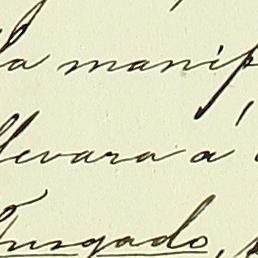 la manif
llevara á
Juzgado,